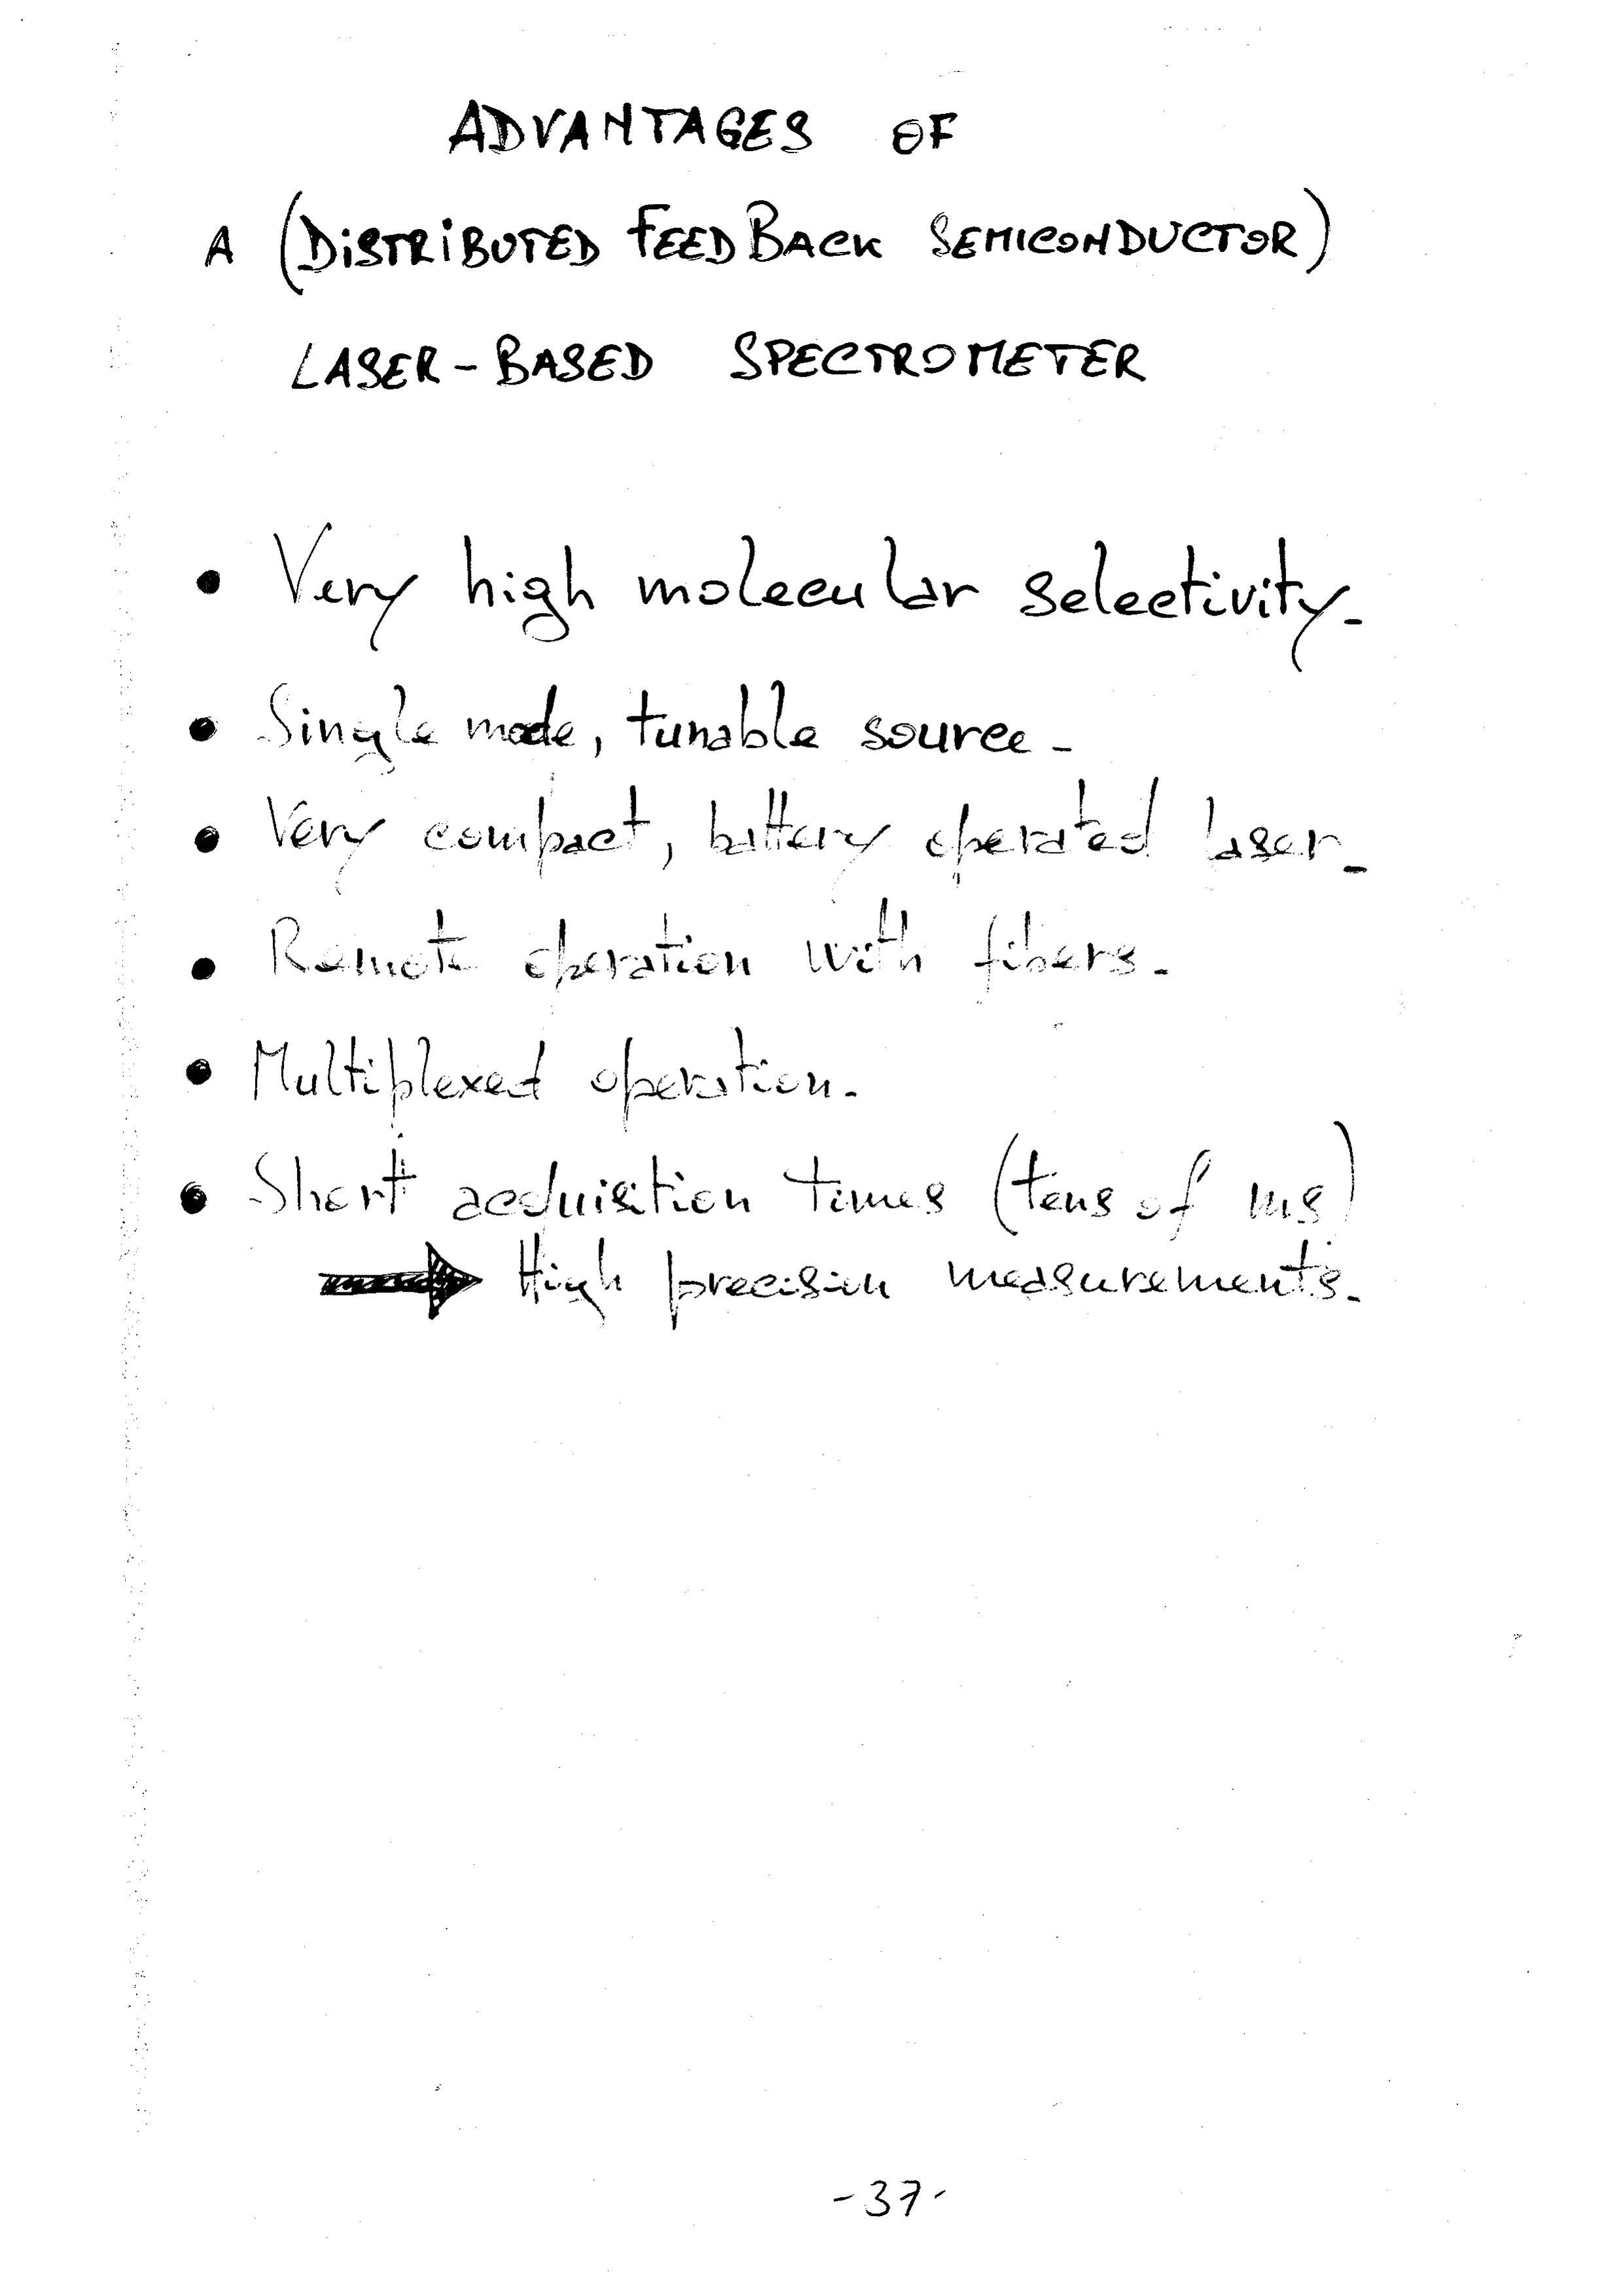 ADVANTAGES OF
A (DISTRIBUTED FEEDBACK SEMICONDUCTOR)
LASER-BASED SPECTROMETER
• Very high molecular selectivity.
• Single mode, tunable source.
• Very compact, battery operated laser.
• Remote operation with fibers.
• Multiplexed operation.
• Short acquisition times (tens of ms)
→ High precision measurements.
-37-